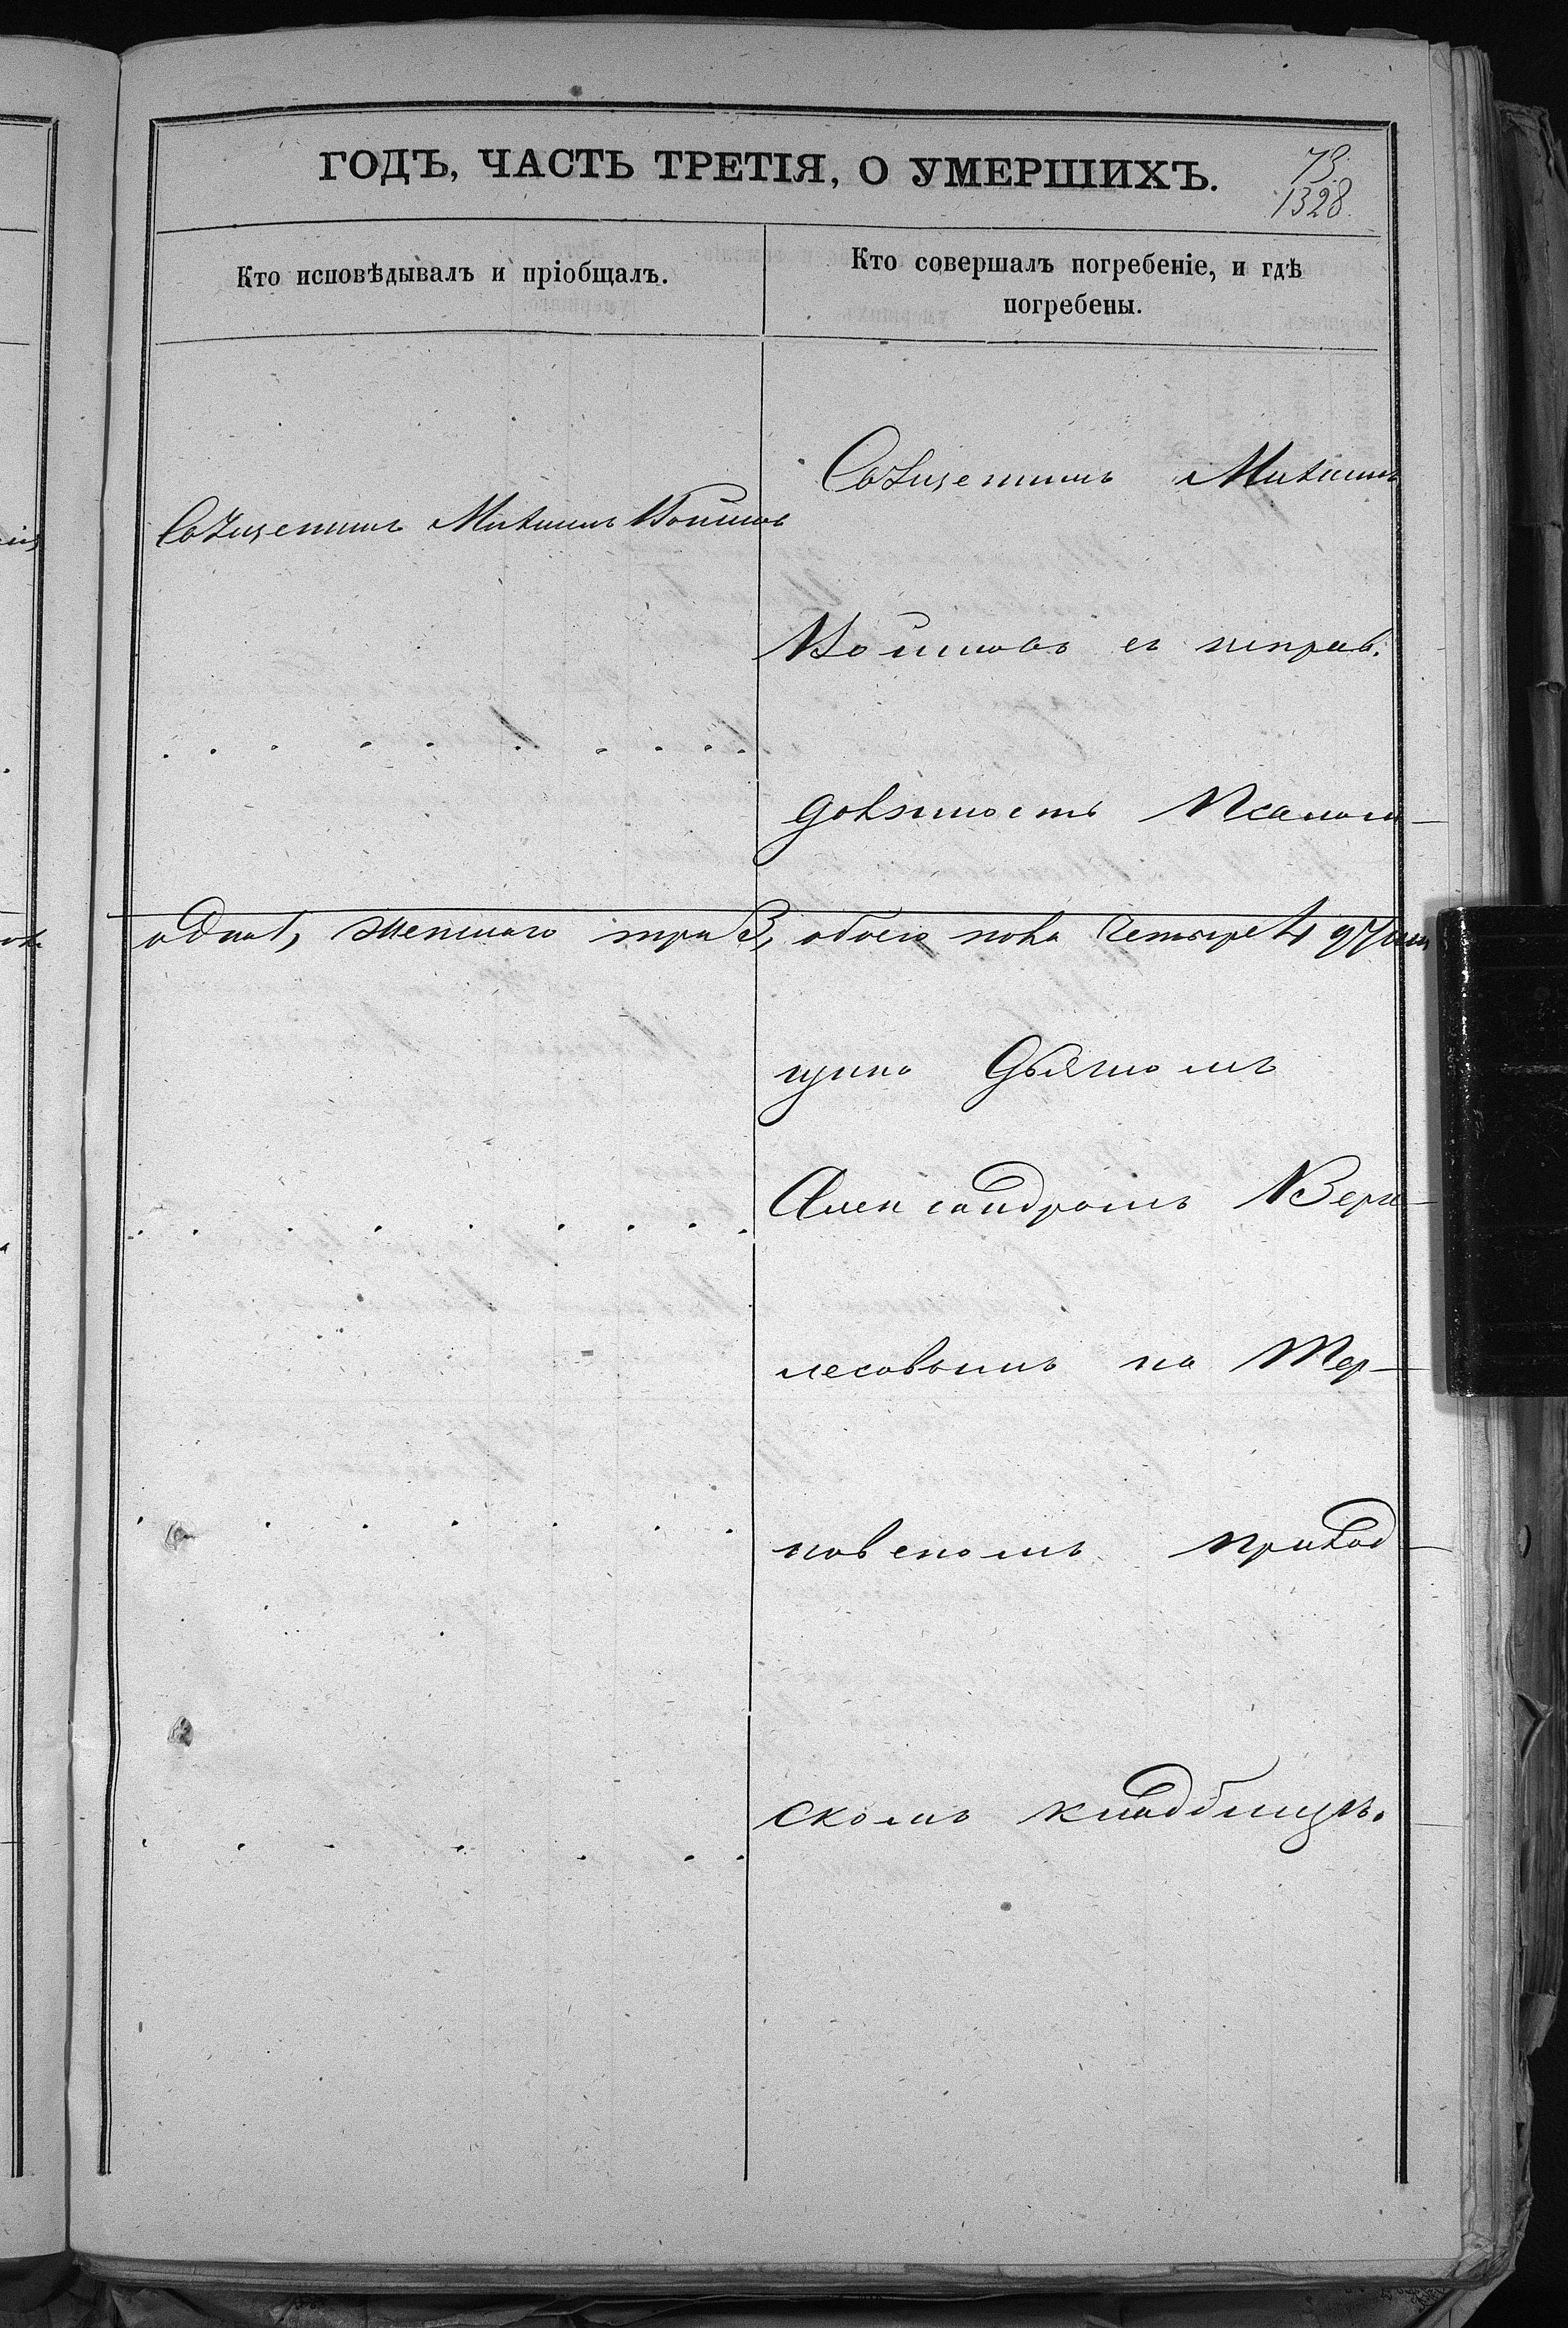 ГОДЪ, ЧАСТЬ ТРЕТІЯ, О УМЕРШИХЪ.
73.
1328.
Кто исповѣдывалъ и пріобщалъ.
Кто совершалъ погребеніе, и гдѣ
погребены.
Священникъ Михаилъ
Священникъ Михаилъ Воиновъ
Воиновъ съ исправ.
должность Псалом-
одна 1, женскаго три 3, обоего пола четыре 4 души
щика Дьякономъ
Александромъ Верг-
лесовымъ на Тер-
новскомъ приход-
скомъ кладбищѣ.